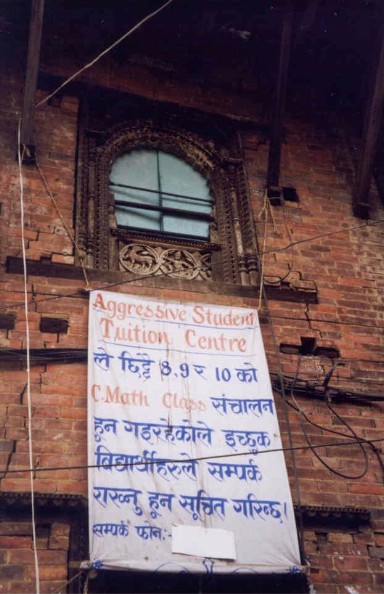 Aggressive Student
Tuition Centre
ले छिट्टै 8,9 र 10 को
C.Math Class संचालन
हुन गइरहेकोले इच्छुक
विद्यार्थीहरुले सम्पर्क
राख्नु हुन सूचित गरिन्छ।
सम्पर्क फोन:-